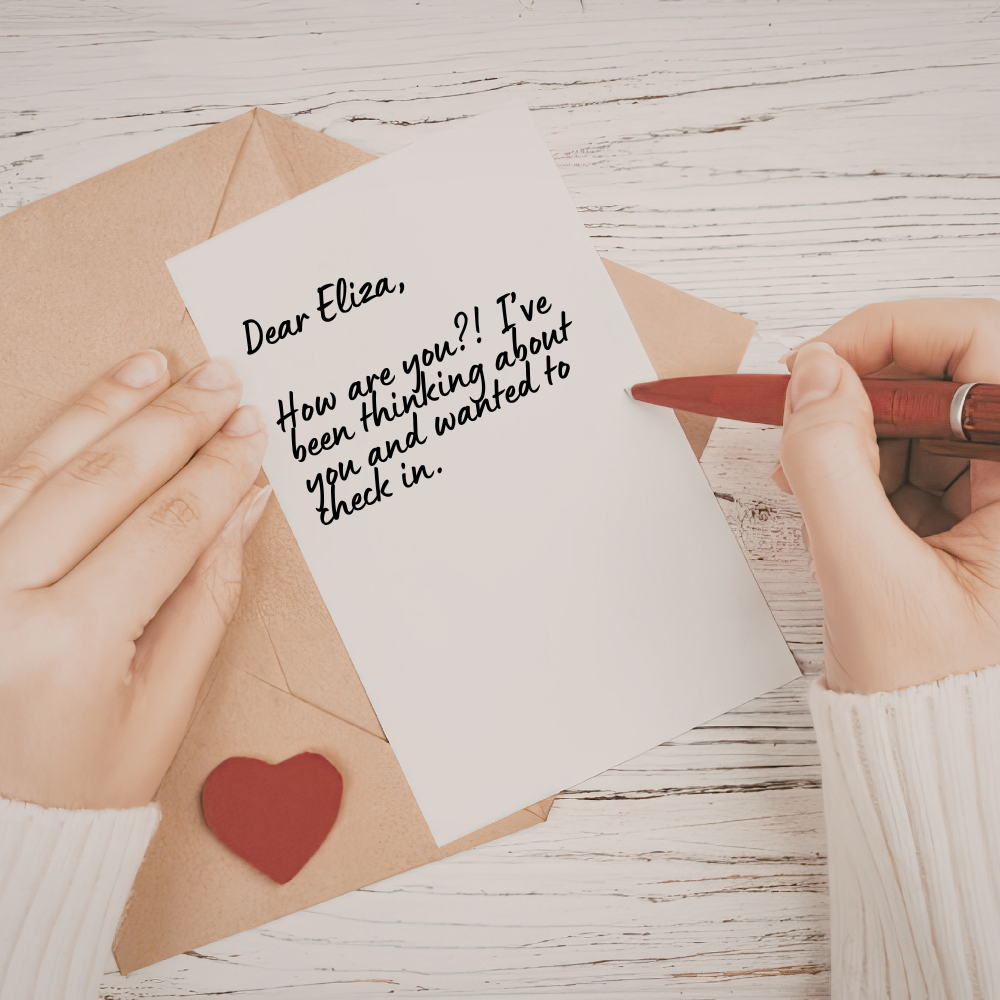 Dear Eliza,
How are you?! I've
been thinking about
you and wanted to
check in.